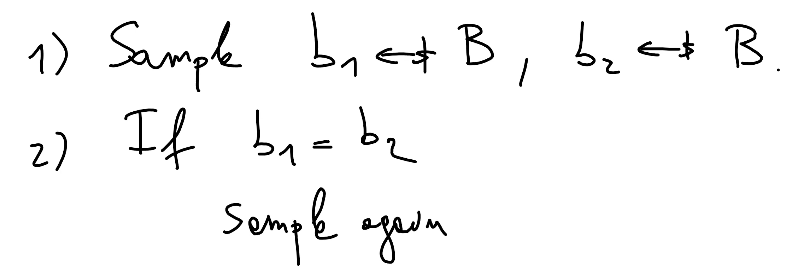 1) Sample b₁ ←$ B, b₂ ←$ B.
2) If b₁ = b₂
Sample again